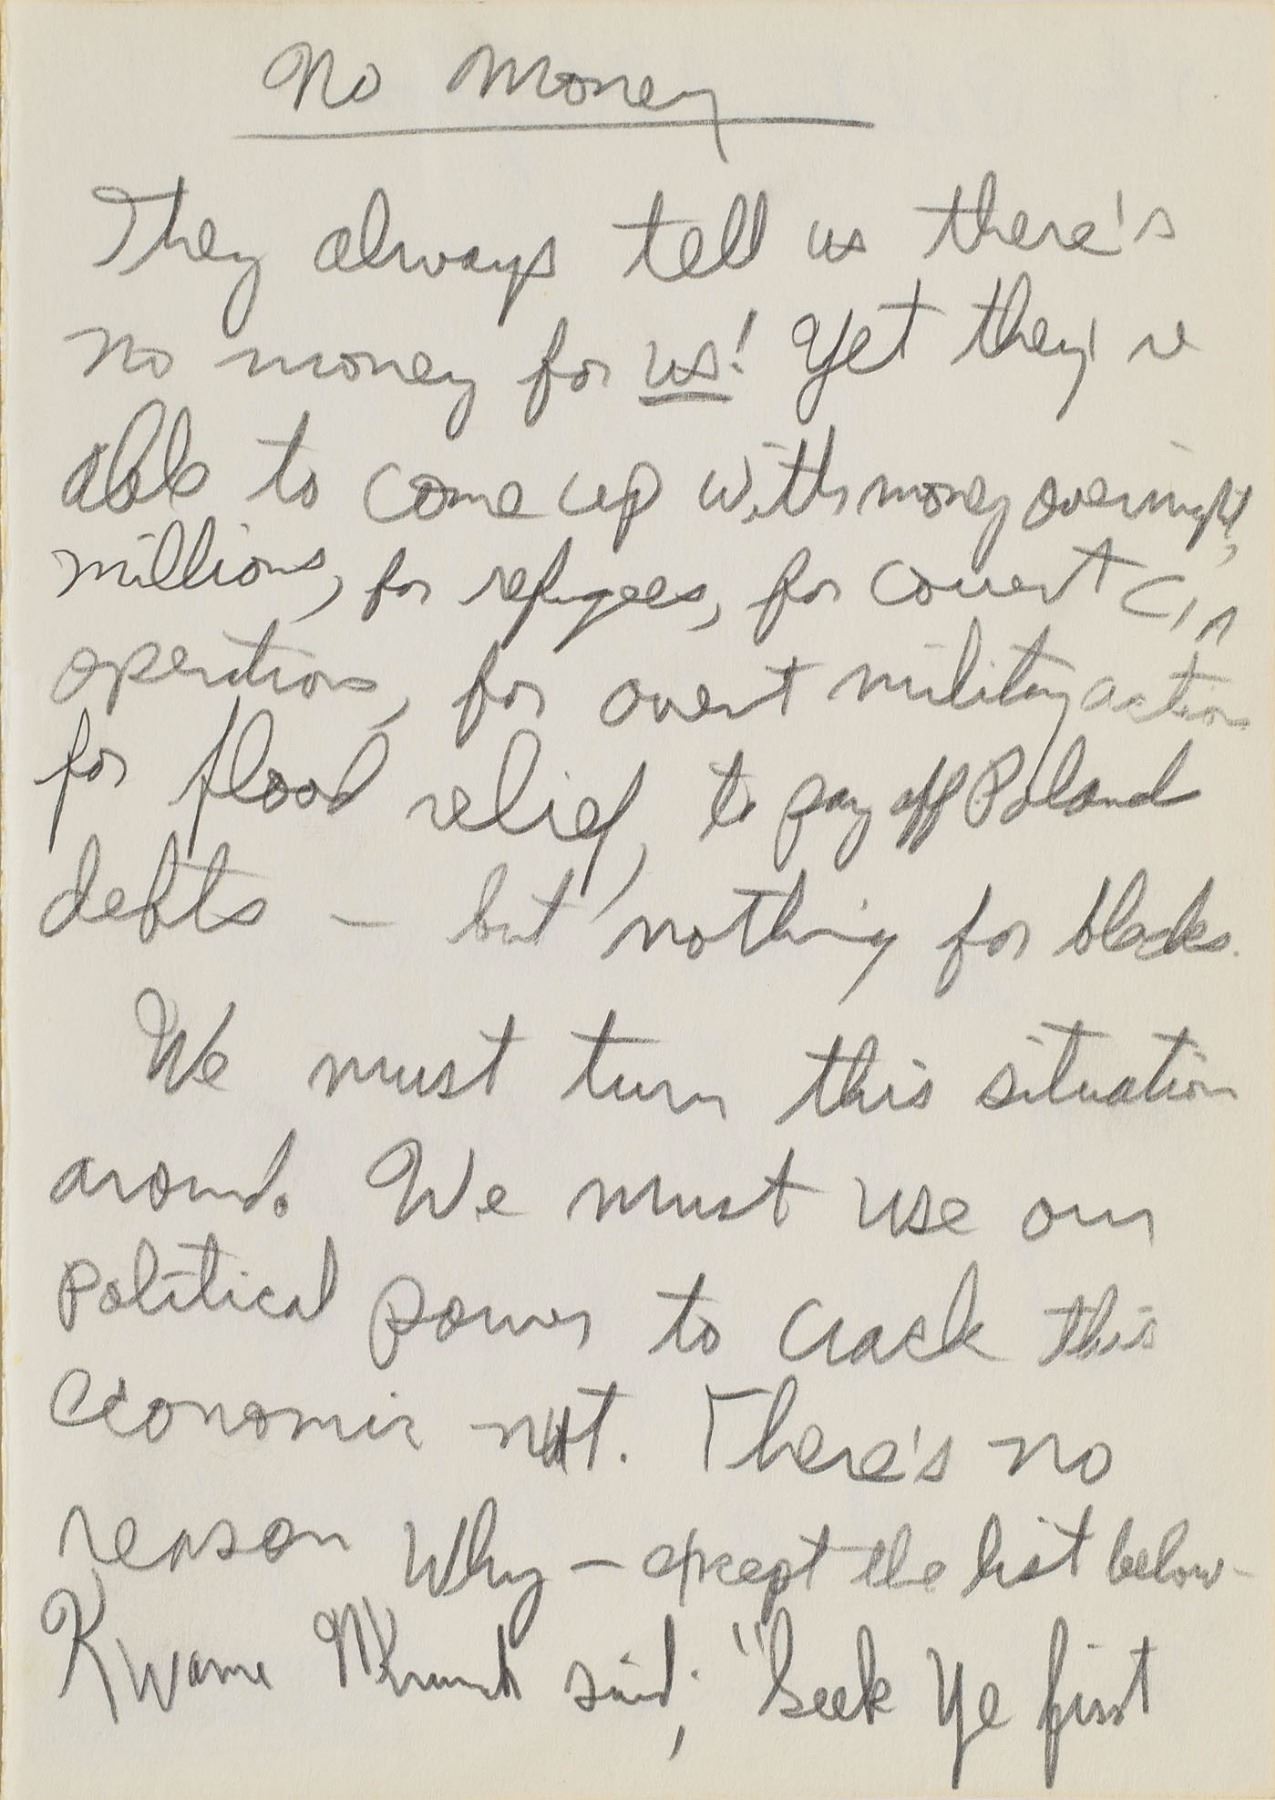 No Money
They always tell us there's
no money for us! Yet they're
able to come up with money overnight,
millions, for refugees, for covert CIA
operations, for overt military action
for flood relief, to pay off Poland
debts — but nothing for blacks.
We must turn this situation
around. We must use our
political power to crack this
economic nut. There's no
reason why — except the list below —
Kwame Nkrumah said; "Seek Ye first